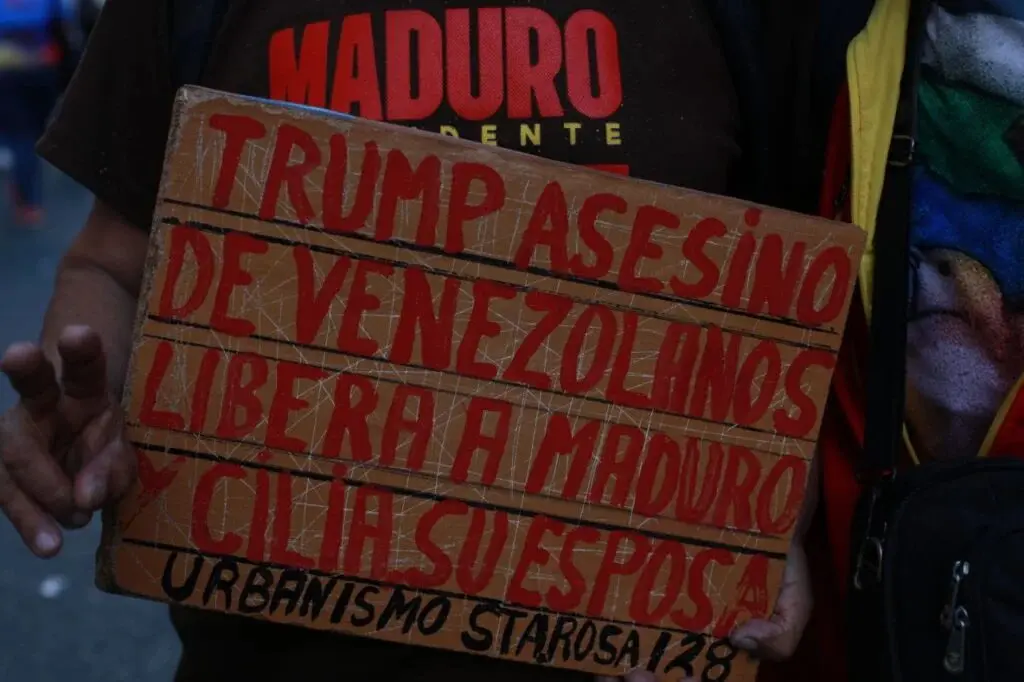 MADURO
DENTE
TRUMP ASESINO
DE VENEZOLANOS
LIBERA A MADURO
Y CILIA SU ESPOSA
URBANISMO STAROSA 128